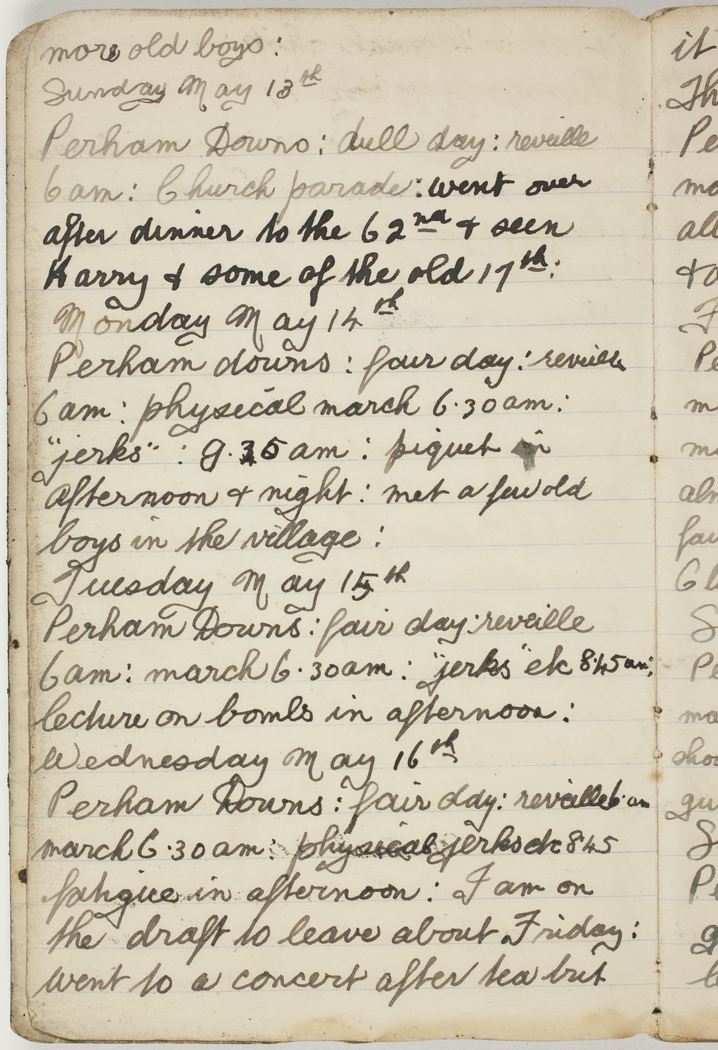 more old boys:
Sunday May 13th
Perham Downs: dull day: reveille
6am: Church parade: went over
after dinner to the 62nd & seen
Harry & some of the old 17th:
Monday May 14th
Perham downs: fair day: reveille
6am: physical march 6.30am:
"jerks": 9.35am: piquet in
afternoon & night: met a few old
boys in the village:
Tuesday May 15th
Perham Downs: fair day: reveille
6am: march 6.30am: "jerks" etc 8.45am:
lecture on bombs in afternoon:
Wednesday May 16th
Perham Downs: fair day: reveille 6.am
march 6.30am: physical jerks etc 845
fatigue in afternoon: I am on
the draft to leave about Friday:
went to a concert after tea but
it
Th
Pe
ma
all
&
F
Pe
m
ma
alm
fai
Gl
S
Pe
ma
shou
gu
S
Pe
g